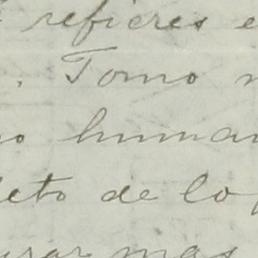 refieres e
. Tomo n
o human
eto de lo
urar mas